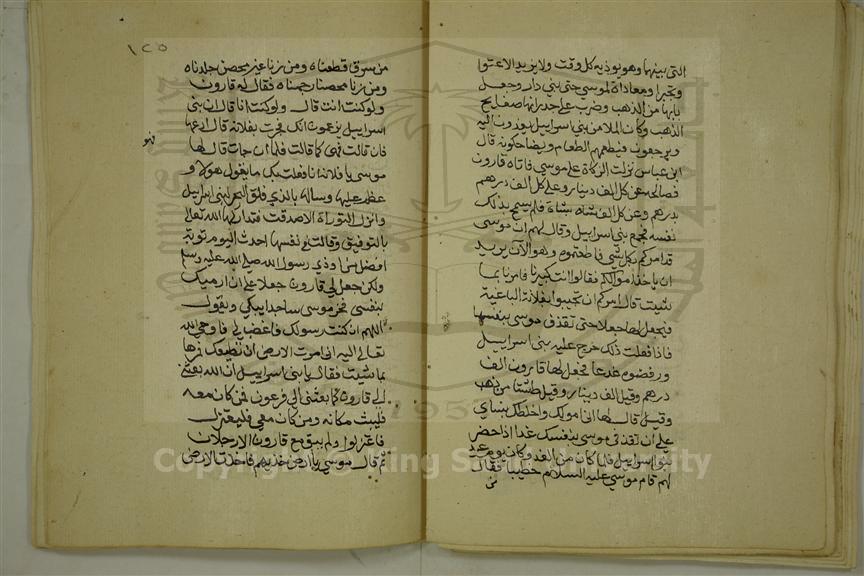 التي بينهما وهو يوذيه كل وقت ولا يزيد الا عتوا
وتجبرا ومعاداة لموسى حتى بني دار وجعل
بابها من الذهب وضرب على جدرانها صفايح
الذهب وكان الملا من بني اسراييل يغدون اليه
ويرجعون فيطعمهم الطعام ويضاحكونه قال
ابن عباس نزلت الزكاة على موسى فاتاه قارون
فصالحه عن كل الف دينار وعلى كل الف درهم
بدرهم وعن كل الف شاة شاة فلم يسمح بذلك
نفسه فجمع بني اسراييل وقال لهم ان موسى
قد امركم بكل شي فاطعتموه وهو الان يريد
ان ياخذ اموالكم فقالوا انت كبيرنا فامرنا بما
شيت قال امركم ان تجيبوا بفلانة الباغية
فنجعل لها جعلا حتى تقذف موسى بنفسها
فاذا فعلت ذلك خرج عليه بني اسراييل
ورفضوه فدعا فجعل لها قارون الف
درهم وقيل الف دينار وقيل طشتا من ذهب
وقيل قال لها اني امولك واخلطك بنساي
على ان تقذفي موسى بنفسك غدا اذا حضر
بنوا اسراييل فلما كان من الغد وكان يوم عيد
لهم قام موسى عليه السلام خطيبا فقال
من
١٢٥
من سرق قطعناه ومن زنا غير محصن جلدناه
ومن زنا محصنا رجمناه فقال له قارون
ولو كنت انت قال ولو كنت انا قال ان بني
اسراييل يزعمون انك فجرت بفلانة قال ادعها
فان قالت فهو كما قالت فلما ان جات قال لها
فهو
موسى يا فلانة انا فعلت بك ما يقول هولا و
عظم عليها وسالها بالذي فلق البحر لبني اسراييل
وانزل التوراة الا صدقت فتداركها الله تعالى
بالتوفيق وقالت في نفسها احدث اليوم توبة
افضل من ان اوذي رسول الله صلى الله عليه وسلم
ولكن جعل لي قارون جعلا على ان ارميك
بنفسي فخر موسى ساجدا يبكي ويقول
اللهم ان كنت رسولك فاغضب لي فاوحى الله
تعالى اليه اني امرت الارض ان تطيعك فمرها
بما شيت فقال يا بني اسراييل ان الله بعثني
الى قارون كما بعثني الى فرعون فمن كان معه
فليلبث مكانه ومن كان معي فليعتزل
فاعتزلوا ولم يبق مع قارون الا رجلان
ثم قال موسى يا ارض خذيهم فاخذت الارض
Copyright © King Saud University
1957